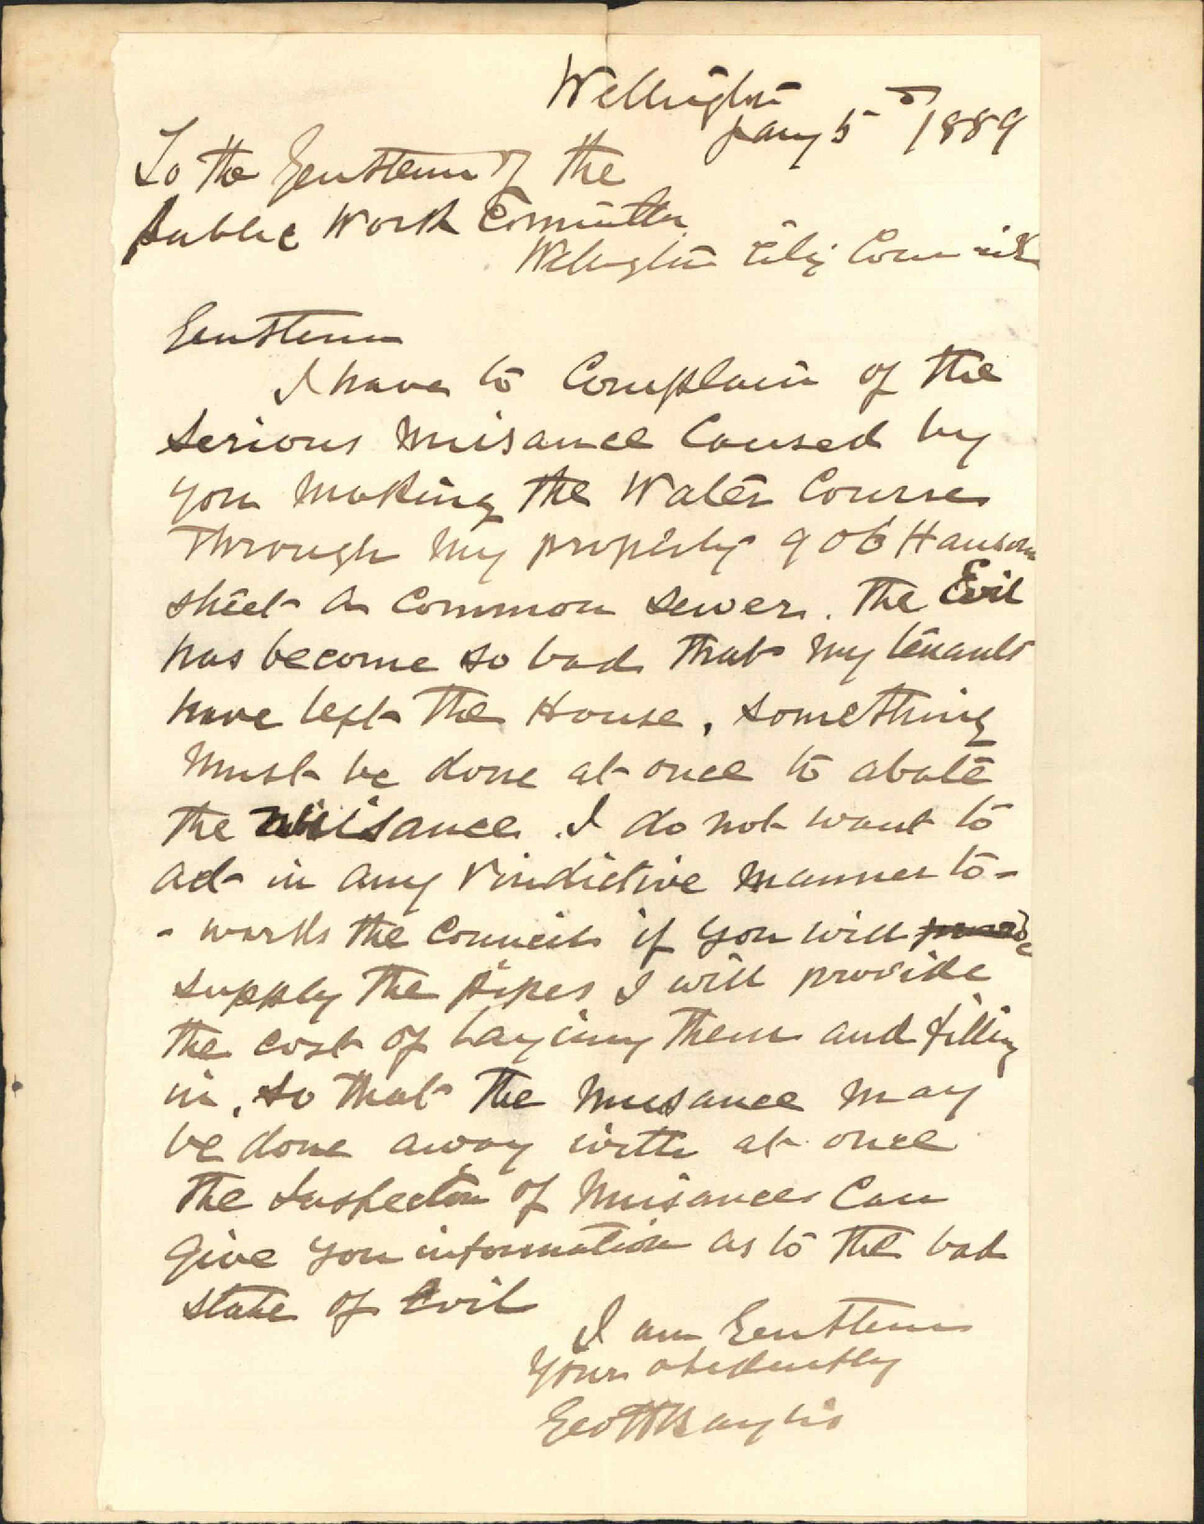 Wellington
Jany 5th 1889
To the Gentlemen of the
Public Work Committee
Wellington City Council
Gentlemen
I have to Complain of the
serious Nuisance Caused by
you Making the Water Course
Through My property 906 Hanson
street a Common Sewer. The Evil
has become so bad that My tenants
have left the House, something
Must be done at once to abate
the nuisance. I do not want to
act in any Vindictive Manner to-
- wards the Council if you will
supply the pipes I will provide
the cost of Laying them and filling
in, so that the Nuisance May
be done away with at once
The Inspector of Nuisances Can
give you information as to the bad
state of Evil
I am Gentlemen
Yours obediently
Geo H Baylis